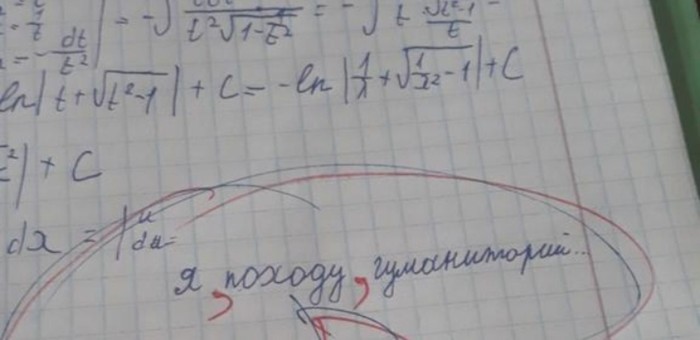 1/t | = -∫ t²√(1-1/t²) = -∫ t √(t²-1)/t
= -dt/t²
ln|t+√(t²-1)| + C = -ln|1/x + √(1/x²-1)| + C
²| + C
dx = |u
du=
Я, походу, гуманиторий..